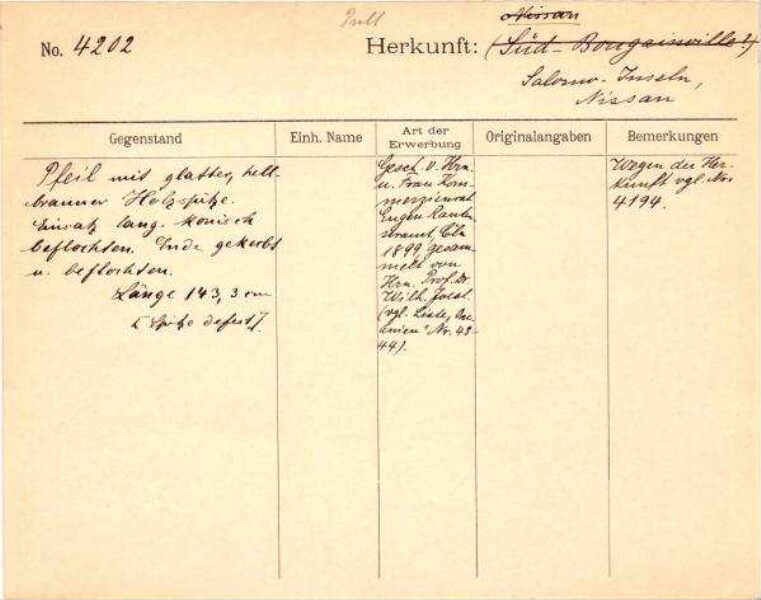 Nissan
No. 4202
Herkunft: (Süd-Bougainville?)
Salomo-Inseln,
Nissan
Gegenstand
Einh. Name
Art der
Erwerbung
Originalangaben
Bemerkungen
Pfeil mit glatter, hell-
brauner Holzspitze.
Einsatz lang-konisch
beflochten. Ende gekerbt
u. beflochten.
Länge 143,3 cm
[Spitze defekt]
Gesch. v. Hrn.
u. Frau Kom-
merzienrat
Eugen Rauten-
strauch, Cöln
1899, gesam-
melt von
Hrn. Prof. Dr.
Wilh. Joest.
(vgl. Liste, Oze-
anien" Nr. 43-
44).
Wegen der Her-
kunft vgl. No
4194.